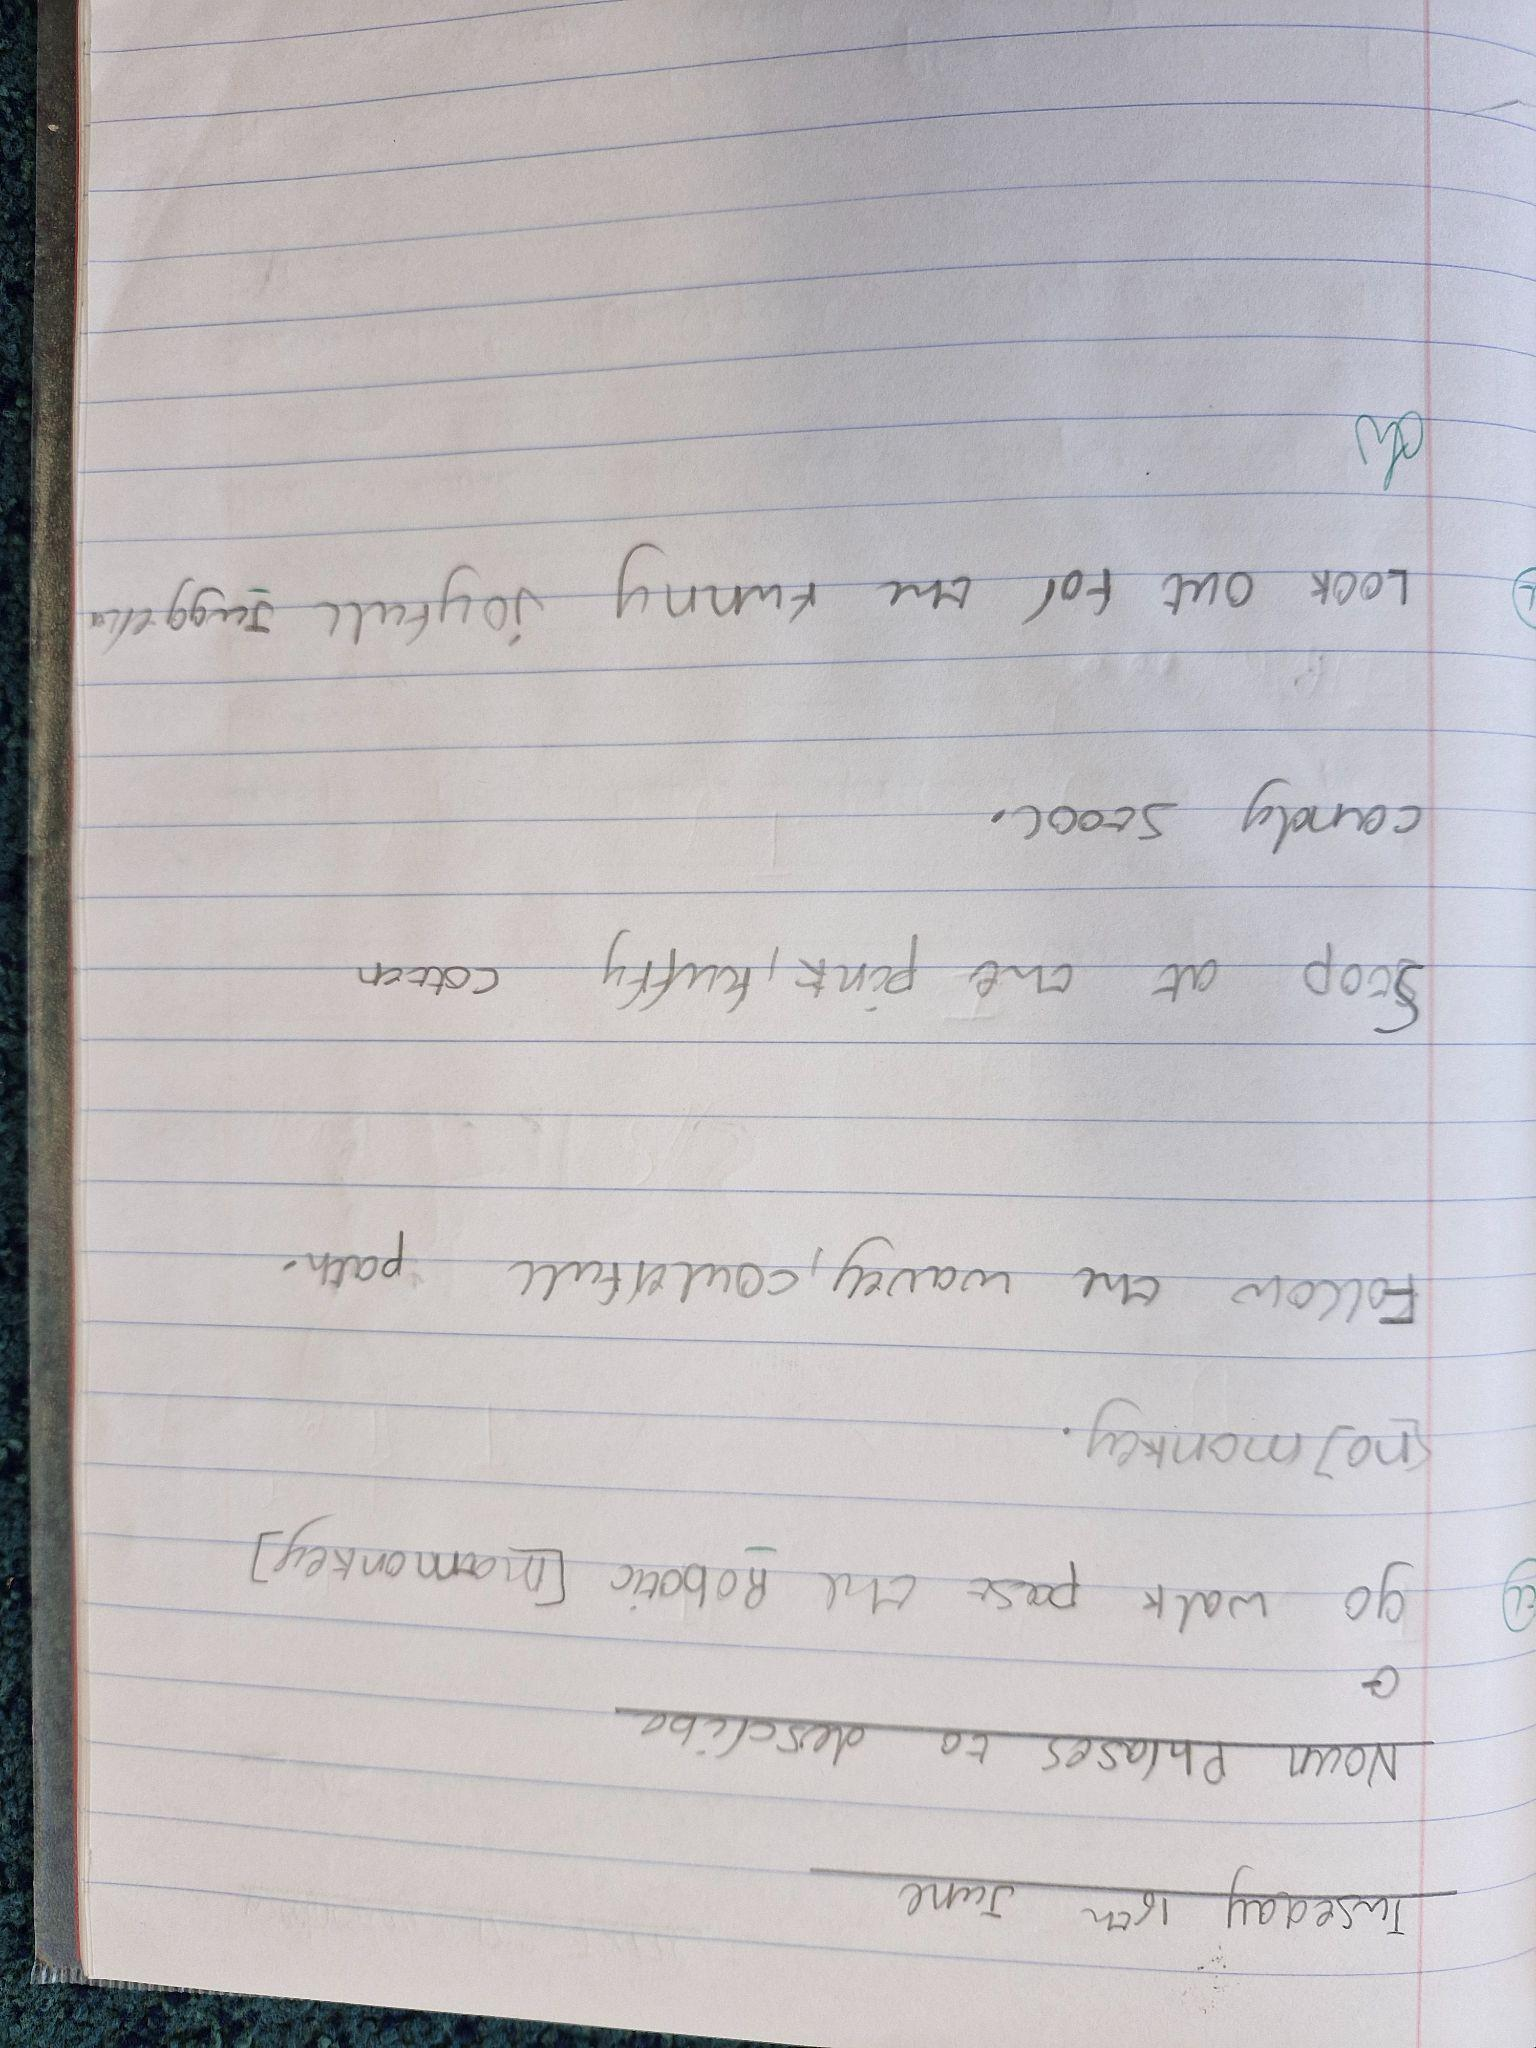 Tuseday 18th June
Noun Phrases to describe
G
go walk past the Robotic [mamonkey]
[no] monkey.
Follow the wavey, coulerfull path.
Stop at the pink, fluffy cotten
candy stool.
Look out for the funny joyfull Juggela